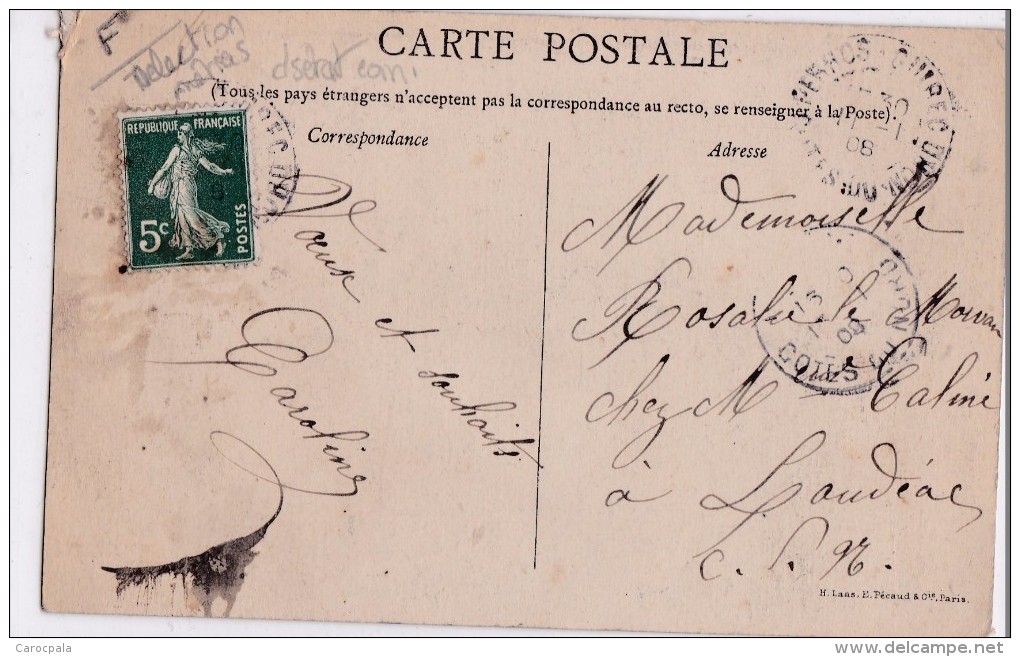 F
CARTE POSTALE
(Tous les pays étrangers n'acceptent pas la correspondance au recto, se renseigner à la Poste).
Correspondance
Adresse
REPUBLIQUE FRANÇAISE
5c
POSTES
Vœux et souhaits
Caroline
Mademoiselle
Rosalie le Morvan
chez Mme Caliné
à Loudéac
C. d. N.
H. Laas, E. Pécaud & Cie, Paris.
Carocpala
www.delcampe.net